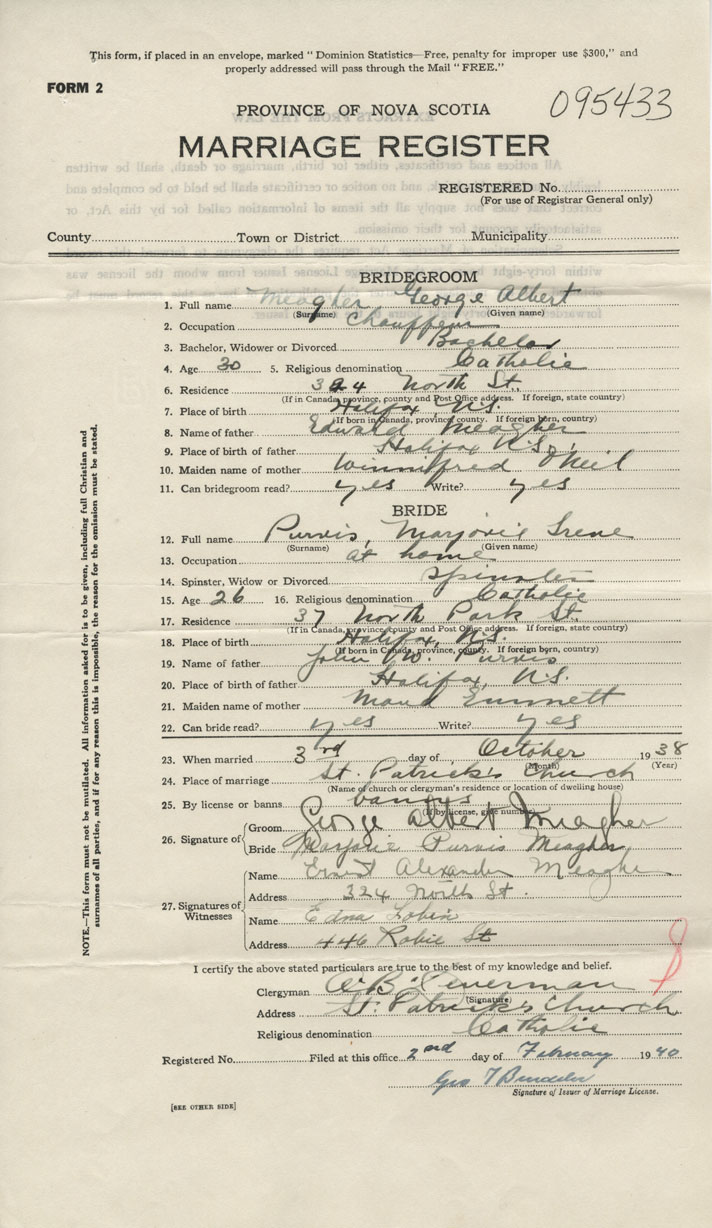 This form, if placed in an envelope, marked "Dominion Statistics—Free, penalty for improper use $300," and
properly addressed will pass through the Mail "FREE."
FORM 2
095433
PROVINCE OF NOVA SCOTIA
MARRIAGE REGISTER
REGISTERED No.
(For use of Registrar General only)
County Town or District Municipality
BRIDEGROOM
1. Full name Meagher, George Albert
(Surname) (Given name)
2. Occupation Chauffeur
3. Bachelor, Widower or Divorced Bachelor
4. Age 30 5. Religious denomination Catholic
6. Residence 324 North St.
(If in Canada, province, county and Post Office address. If foreign, state country)
7. Place of birth Halifax N.S.
(If born in Canada, province, county. If foreign born, country)
8. Name of father Edward Meagher
9. Place of father Halifax N.S.
10. Maiden name of mother Winnifred O'Neil
11. Can bridegroom read? yes Write? yes
BRIDE
12. Full name Purvis, Marjorie Irene
(Surname) (Given name)
13. Occupation at home
14. Spinster, Widow or Divorced Spinster
15. Age 26 16. Religious denomination Catholic
17. Residence 37 North Park St.
(If in Canada, province, county and Post Office address. If foreign, state country)
18. Place of birth Halifax, N.S.
(If born in Canada, province, county. If foreign born, country)
19. Name of father John W. Purvis
20. Place of birth of father Halifax, N.S.
21. Maiden name of mother Maud Emmett
22. Can bride read? yes Write? yes
23. When married 3rd day of October 1938
(Month) (Year)
24. Place of marriage St. Patrick's Church
(Name of church or clergyman's residence or location of dwelling house)
25. By license or banns banns
(If by license, give number)
26. Signature of
Groom George Albert Meagher
Bride Marjorie Purvis Meagher
27. Signatures of Witnesses
Name Ernest Alexander Meagher
Address 324 North St.
Name Edna Tobin
Address 446 Robie St
I certify the above stated particulars are true to the best of my knowledge and belief.
Clergyman
(Signature)
Address St. Patrick's Church
Religious denomination Catholic
Registered No. Filed at this office 2nd day of February 1940
Signature of Issuer of Marriage License.
[SEE OTHER SIDE]
NOTE.—This form must not be mutilated. All information asked for is to be given, including full Christian and
surnames of all parties, and if for any reason this is impossible, the reason for the omission must be stated.